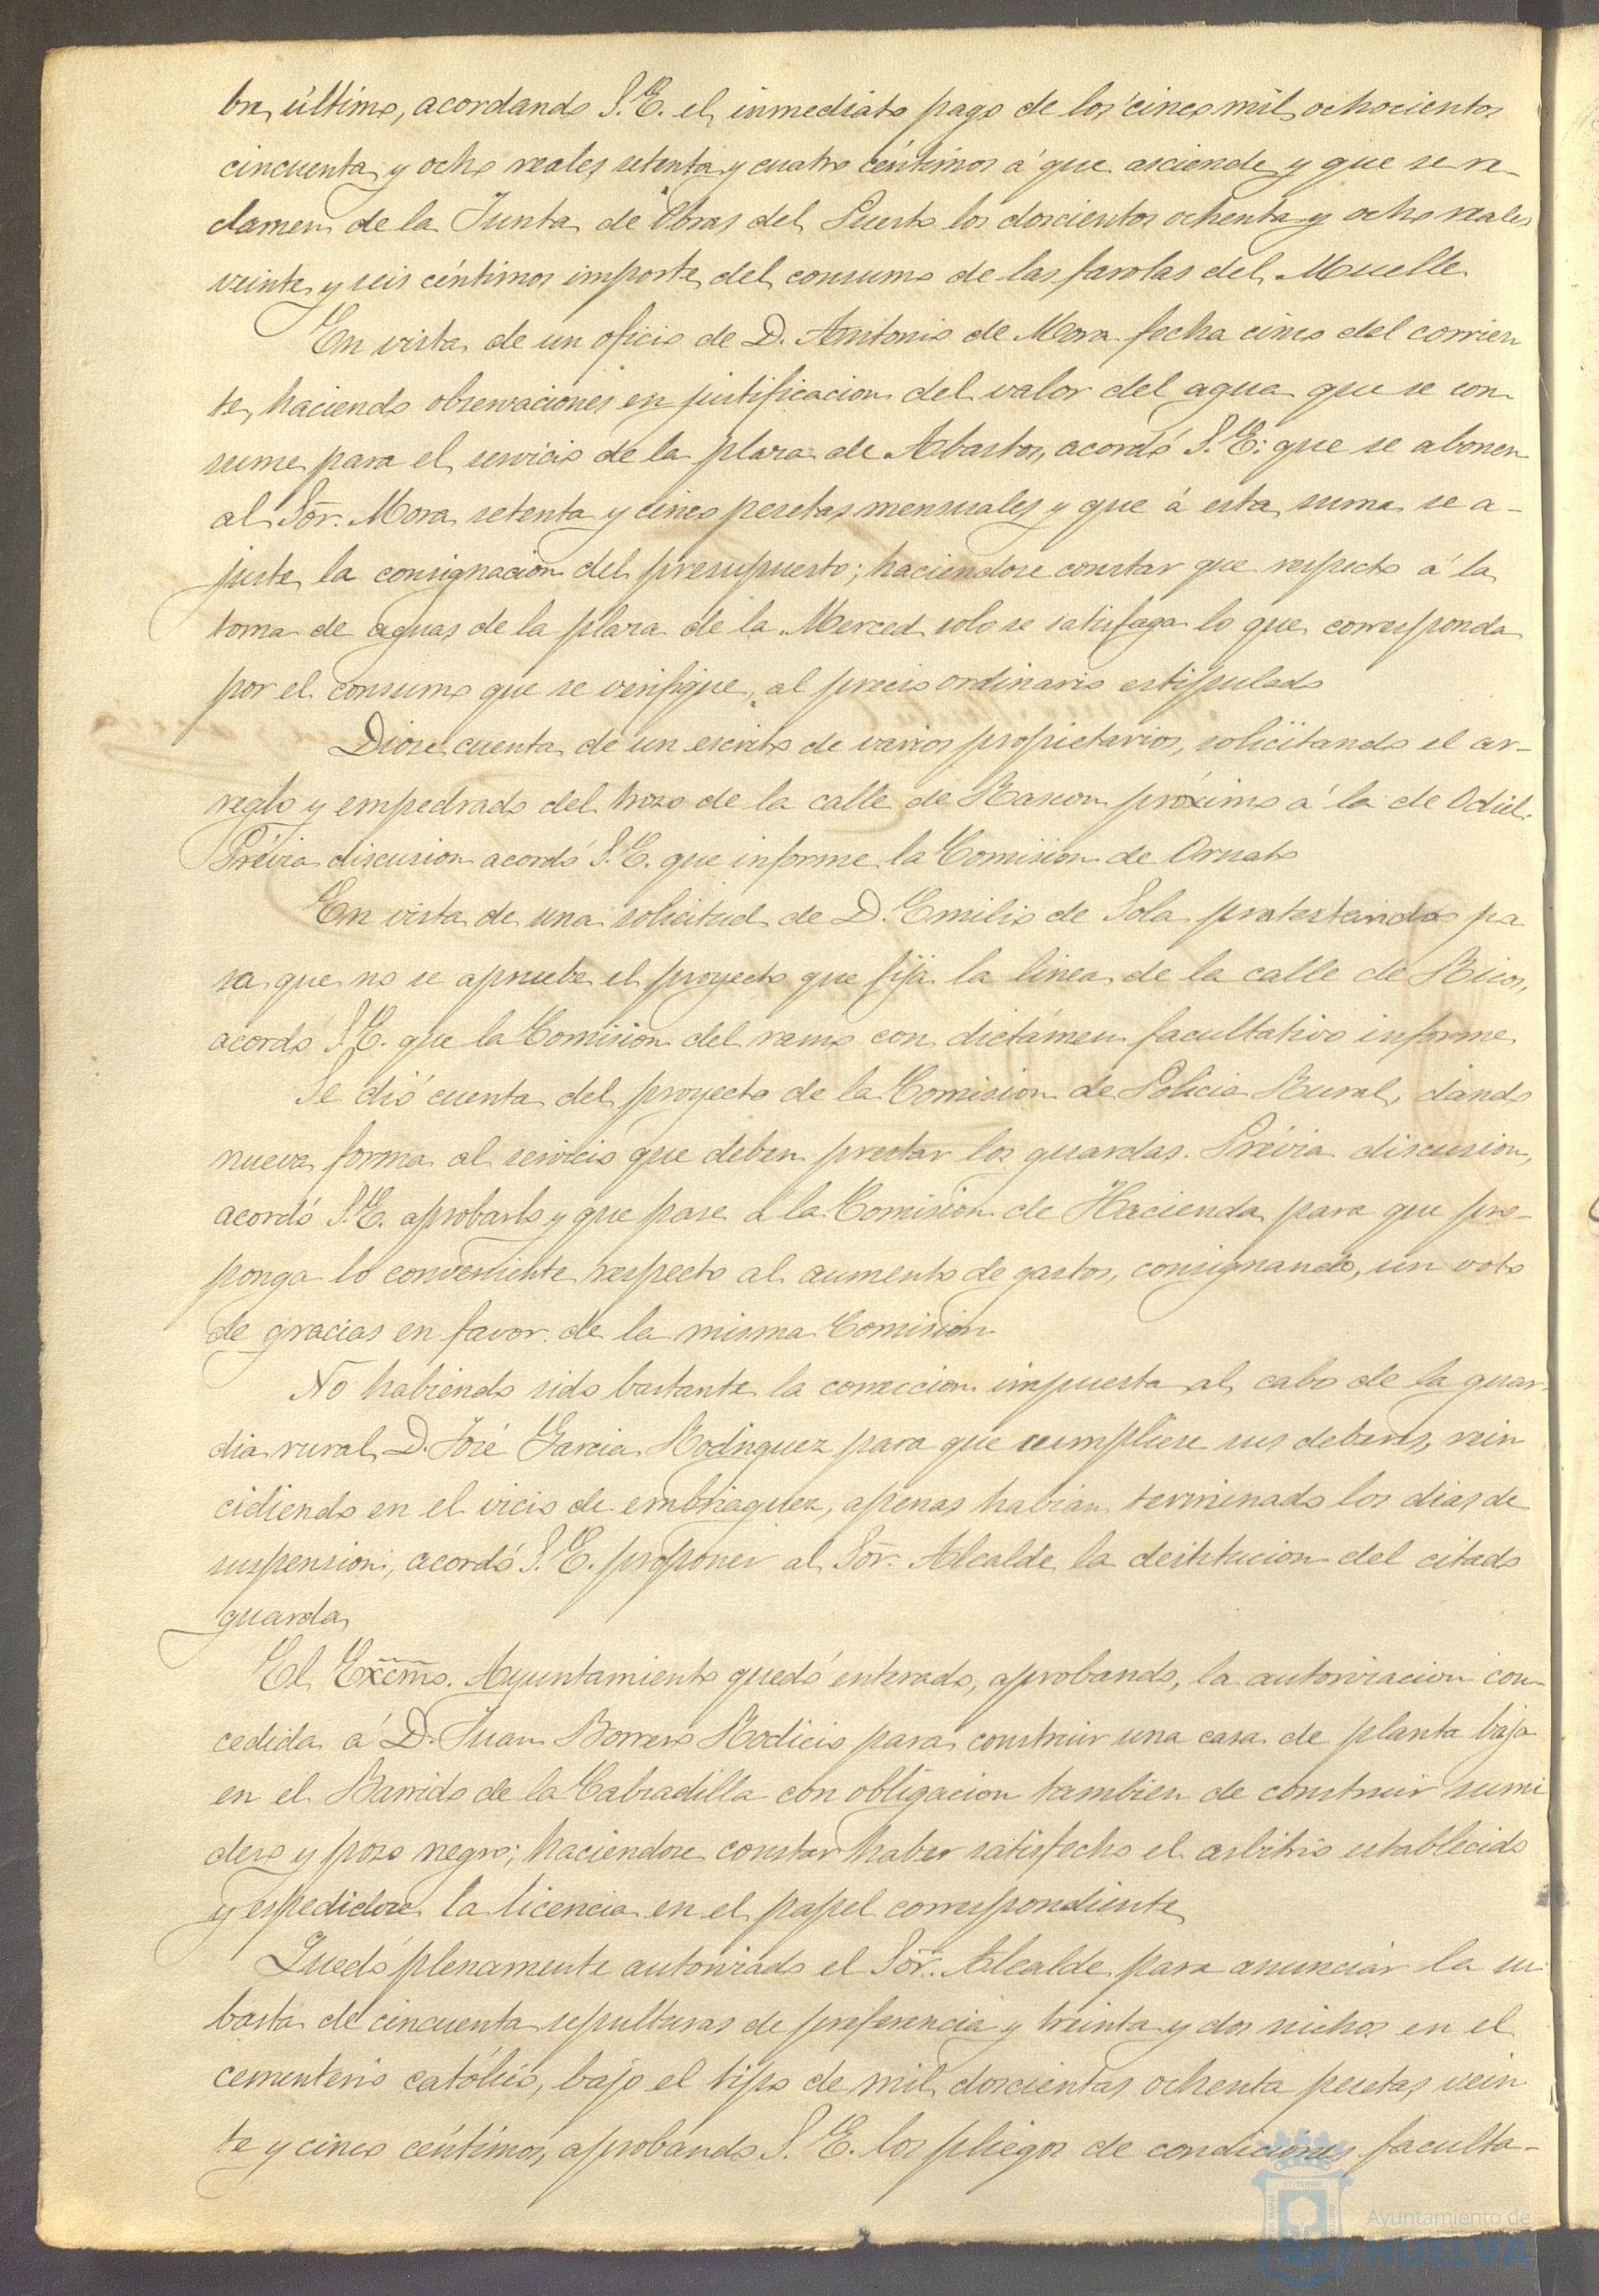 bre último, acordando S.E. el inmediato pago de los cinco mil ochocientos
cincuenta y ocho reales setenta y cuatro céntimos á que asciende y que se re-
clamen de la Junta de Obras del Puerto los doscientos ochenta y ocho reales
veinte y seis céntimos importe del consumo de las farolas del Muelle
En vista de un oficio de D. Antonio de Mora fecha cinco del corrien
te, haciendo observaciones en justificacion del valor del agua que se con
sume para el servicio de la plaza de Abastos, acordó S.E. que se abonen
al Sõr. Mora setenta y cinco pesetas mensuales y que á esta suma se a-
juste la consignación del presupuesto; haciendose constar que respecto á la
toma de aguas de la plaza de la Merced solo se satisfaga lo que corresponda
por el consumo que se verifique, al precio ordinario estipulado
Diose cuenta de un escrito de varios propietarios, solicitando el ar-
reglo y empedrado del trozo de la calle de Rascon próximo á la de Odiel.
Prévia discusion acordó S.E. que informe la Comision de Ornato
En vista de una solicitud de D. Emilio de Sola protestando pa
ra que no se apruebe el proyecto que fija la linea de la calle de Ricos,
acordó S.E. que la Comision del ramo con dictámen facultativo informe
Se dió cuenta del proyecto de la Comision de Policia Rural, dando
nueva forma al servicio que deben prestar los guardas. Prévia discusion,
acordó S.E. aprobarlo y que pase á la Comision de Hacienda para que pro-
ponga lo conveniente respecto al aumento de gastos, consignando, un voto
de gracias en favor de la misma Comision
No habiendo sido bastante la correccion impuesta al cabo de la guar
dia rural D. José Garcia Rodriguez para que cumpliese sus deberes, rein
cidiendo en el vicio de embriaguez, apenas habian terminado los dias de
suspension, acordó S.E. proponer al Sõr. Alcalde la destitucion del citado
guarda
El Excmo. Ayuntamiento quedó enterado, aprobando, la autorizacion con-
cedida á D. Juan Borrero Rodicio para construir una casa de planta baja
en el Barrido de la Calzadilla con obligacion tambien de construir sumi
dero y pozo negro; haciendose constar haber satisfecho el arbitrio establecido
y espedidose la licencia en el papel correspondiente
Quedó plenamente autorizado el Sõr. Alcalde para anunciar la su
basta de cincuenta sepulturas de preferencia y treinta y dos nichos en el
cementerio católico, bajo el tipo de mil doscientas ochenta pesetas vein
te y cinco céntimos, aprobando S.E. los pliegos de condiciones faculta-
Ayuntamiento de
HUELVA